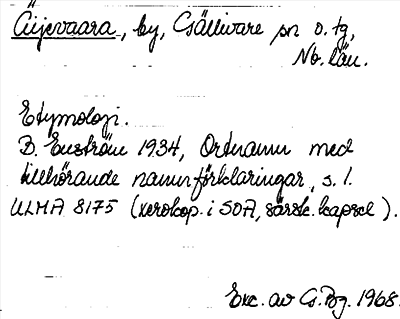 Äijevaara, by, Gällivare sn o. tg,
Nb. län.
Etymologi.
B. Enström 1934, Ortnamn med
tillhörande namnförklaringar, s. 1.
ULMA 8175 (xerokop. i SOA, särsk. kapsel).
Exc. av G. Pg. 1968.